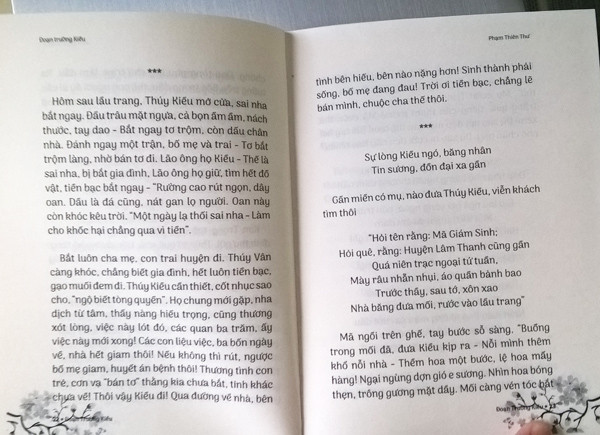 Đoạn trường Kiều
***
Hôm sau lầu trang, Thúy Kiều mở cửa, sai nha
bắt ngay. Đầu trâu mặt ngựa, cả bọn ầm ầm, nách
thước, tay dao - Bắt ngay tơ trộm, còn dấu chân
nhà. Đánh ngay một trận, bố mẹ và trai - Tơ bắt
trộm làng, nhờ bán tơ đi. Lão ông họ Kiều - Thế là
sai nha, bị bắt gia đình, Lão ông họ giữ, tìm hết đồ
vật, tiền bạc bắt ngay - "Rường cao rút ngọn, dây
oan. Dẫu là đá cũng, nát gan lọ người. Oan này
còn khóc kêu trời. "Một ngày lạ thói sai nha - Làm
cho khốc hại chẳng qua vì tiền".
Bắt luôn cha mẹ, con trai huyện đi. Thúy Vân
càng khóc, chẳng biết gia đình, hết luôn tiền bạc,
gạo muối đem đi. Thúy Kiều cần thiết, cốt nhục sao
cho, "ngộ biết tòng quyền". Họ chung mới gặp, nha
dịch từ tâm, thấy nàng hiếu trọng, cũng thương
xót lòng, việc này lót đó, các quan ba trăm, ấy
việc này mới xong! Các con liệu việc, ba bốn ngày
về, nhà hết giam thôi! Nếu không thì rút, ngược
bố mẹ giam, huyết án bệnh thôi! Thương tình con
trẻ, cơn vạ "bán tơ" thằng kia chưa bắt, tình khác
chưa về! Thôi vậy Kiều đi! Qua đường về nhà, bên
Đoạn Trường Kiều
Phạm Thiên Thư
tình bên hiếu, bên nào nặng hơn! Sinh thành phải
sống, bố mẹ đang đau! Trời ơi tiền bạc, chẳng lẽ
bán mình, chuộc cha thế thôi.
***
Sự lòng Kiều ngỏ, băng nhân
Tin sương, đồn đại xa gần
Gần miền có mụ, nào đưa Thúy Kiều, viễn khách
tìm thôi
"Hỏi tên rằng: Mã Giám Sinh;
Hỏi quê, rằng: Huyện Lâm Thanh cũng gần
Quá niên trạc ngoại tứ tuần,
Mày râu nhẵn nhụi, áo quần bảnh bao
Trước thầy, sau tớ, xôn xao
Nhà băng đưa mối, rước vào lầu trang"
Mã ngồi trên ghế, tay bước sỗ sàng. "Buồng
trong mối đã, đưa Kiều kịp ra - Nỗi mình thêm
khổ nỗi nhà - Thềm hoa một bước, lệ hoa mấy
hàng! Ngại ngùng dợn gió e sương. Nhìn hoa bóng
thẹn, trông gương mặt dầy. Mối càng vén tóc bắt
Đoạn Trường Kiều